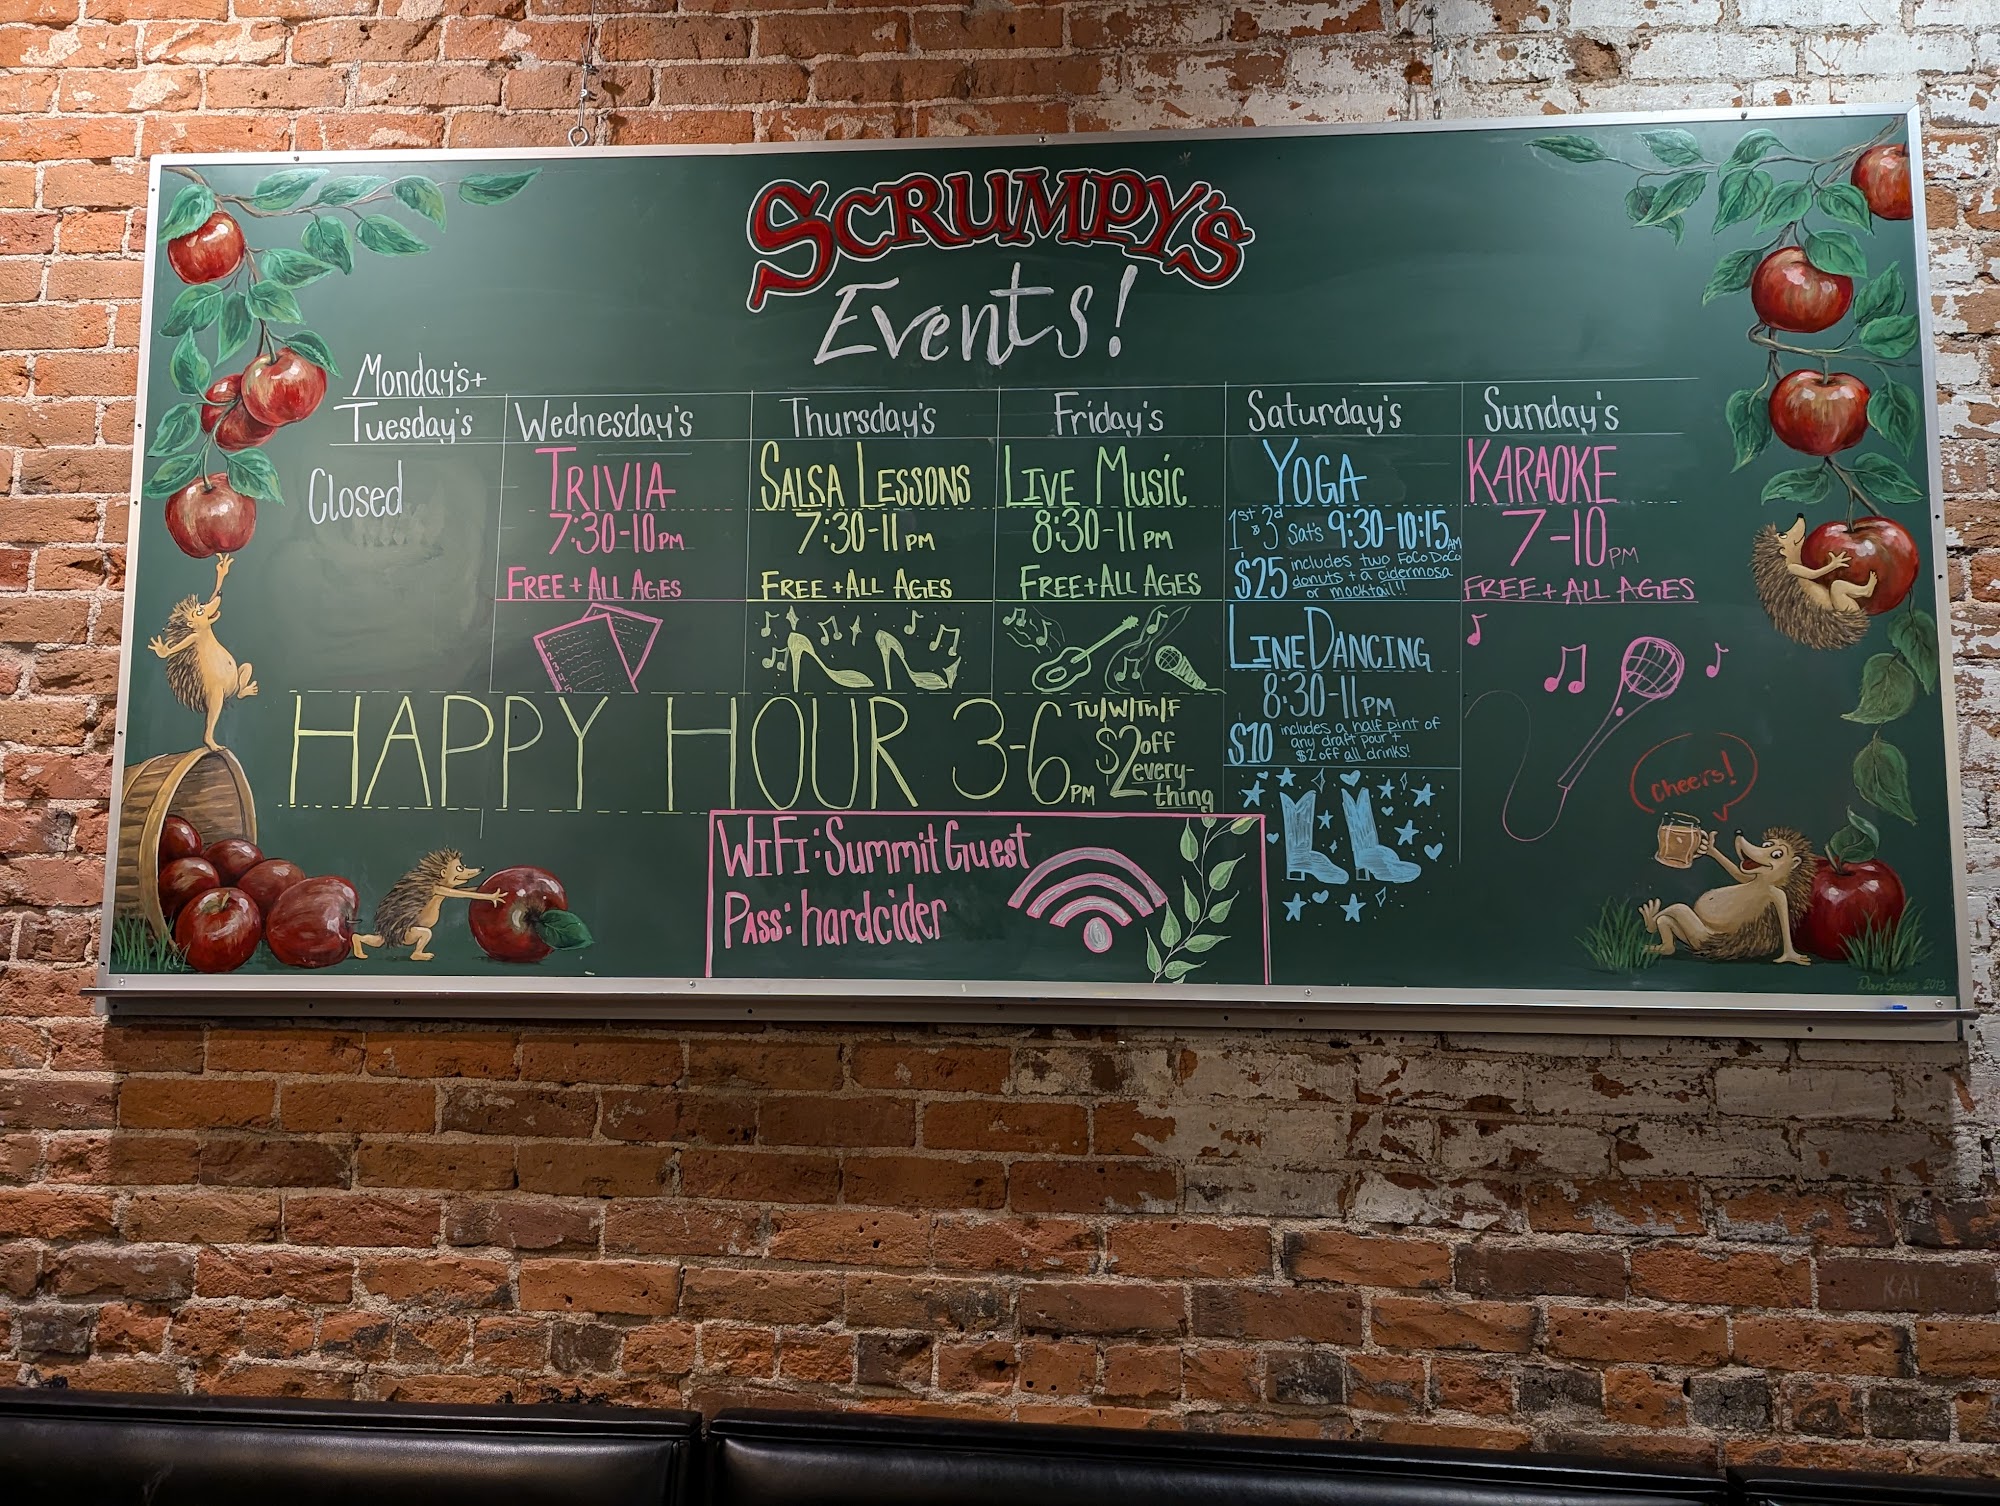 SCRUMPY'S
Events!
Monday's +
Tuesday's
Closed
Wednesday's
TRIVIA
7:30-10 PM
FREE + ALL AGES
Thursday's
SALSA LESSONS
7:30-11 PM
FREE + ALL AGES
Friday's
LIVE MUSIC
8:30-11 PM
FREE + ALL AGES
Saturday's
YOGA
1st & 3rd Sat's 9:30-10:15 AM
$25 includes two FoCo DoCo
donuts + a cidermosa
or mocktail!!
LINE DANCING
8:30-11 PM
$10 includes a half pint of
any draft pour +
$2 off all drinks!
Sunday's
KARAOKE
7-10 PM
FREE + ALL AGES
HAPPY HOUR 3-6 PM
Tu/W/Th/F
$2 off
every-
thing
WIFI: Summit Guest
PASS: hardcider
Cheers!
2013
KAI